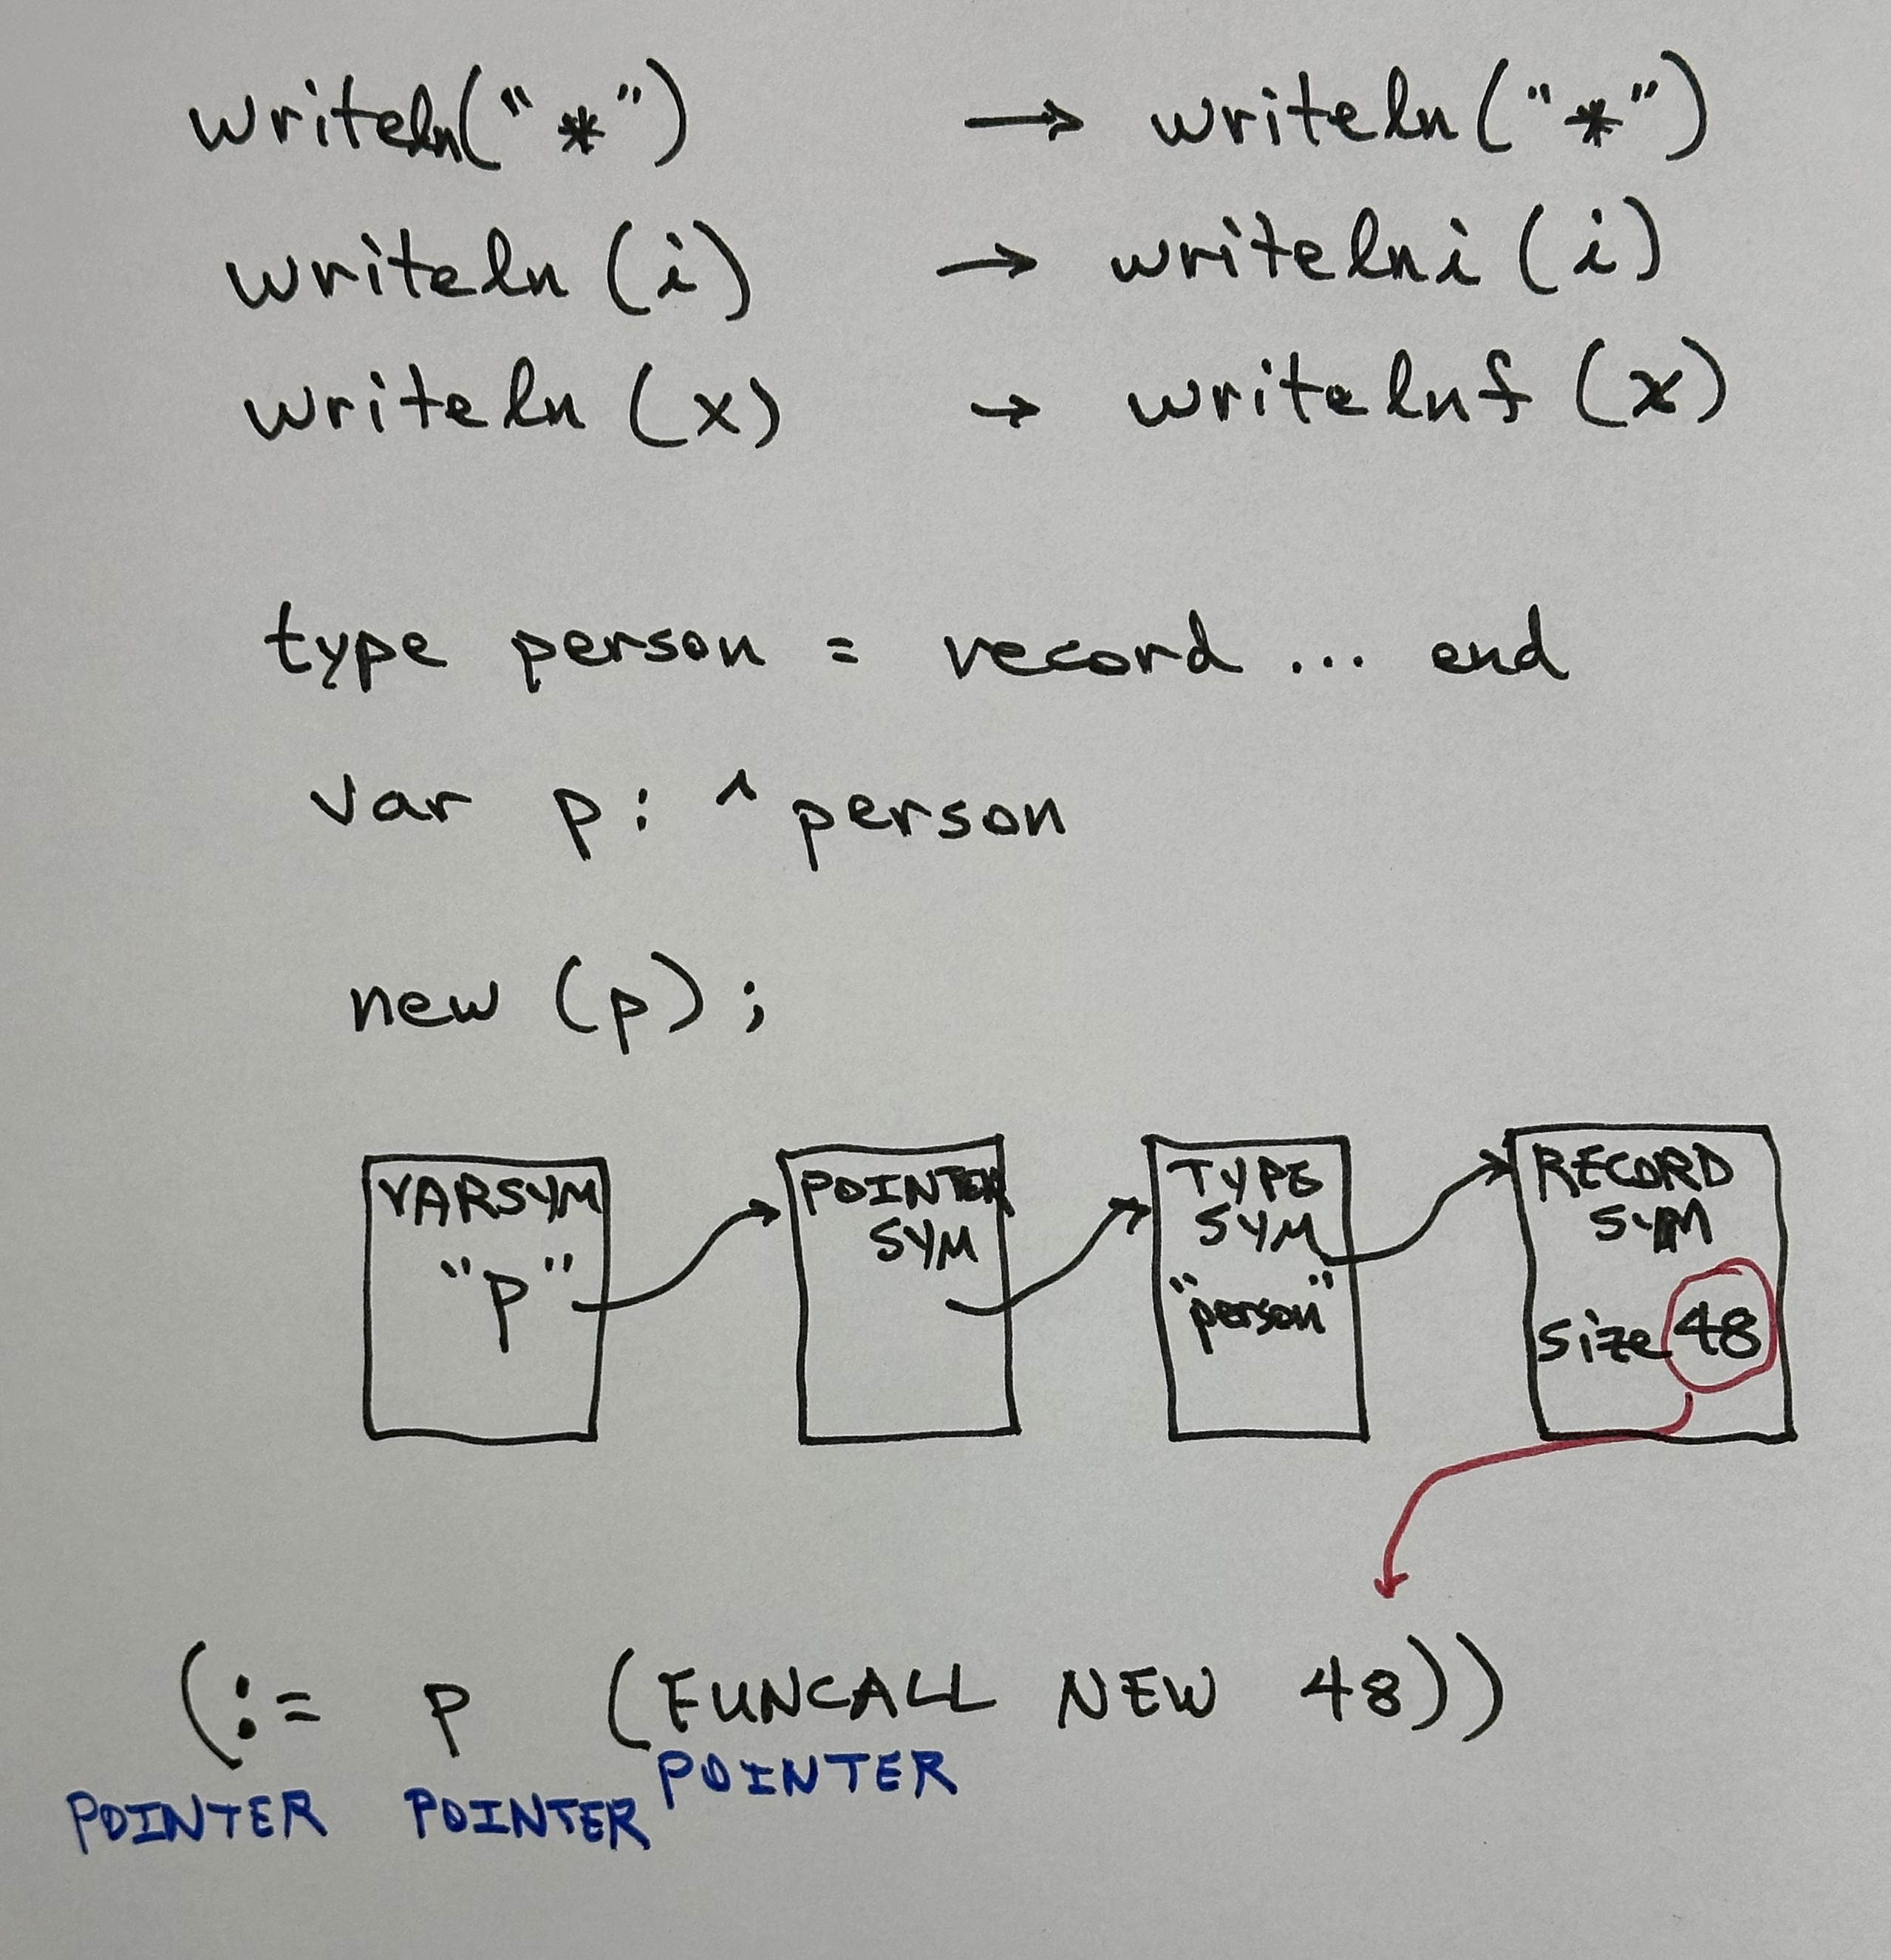 writeln("*") → writeln("*")
writeln (i) → writelni (i)
writeln (x) → writelnf (x)
type person = record ... end
var p: ^person
new (p);
VARSYM
"p"
POINTER
SYM
TYPE
SYM
"person"
RECORD
SYM
size 48
(:= p (FUNCALL NEW 48))
POINTER POINTER POINTER